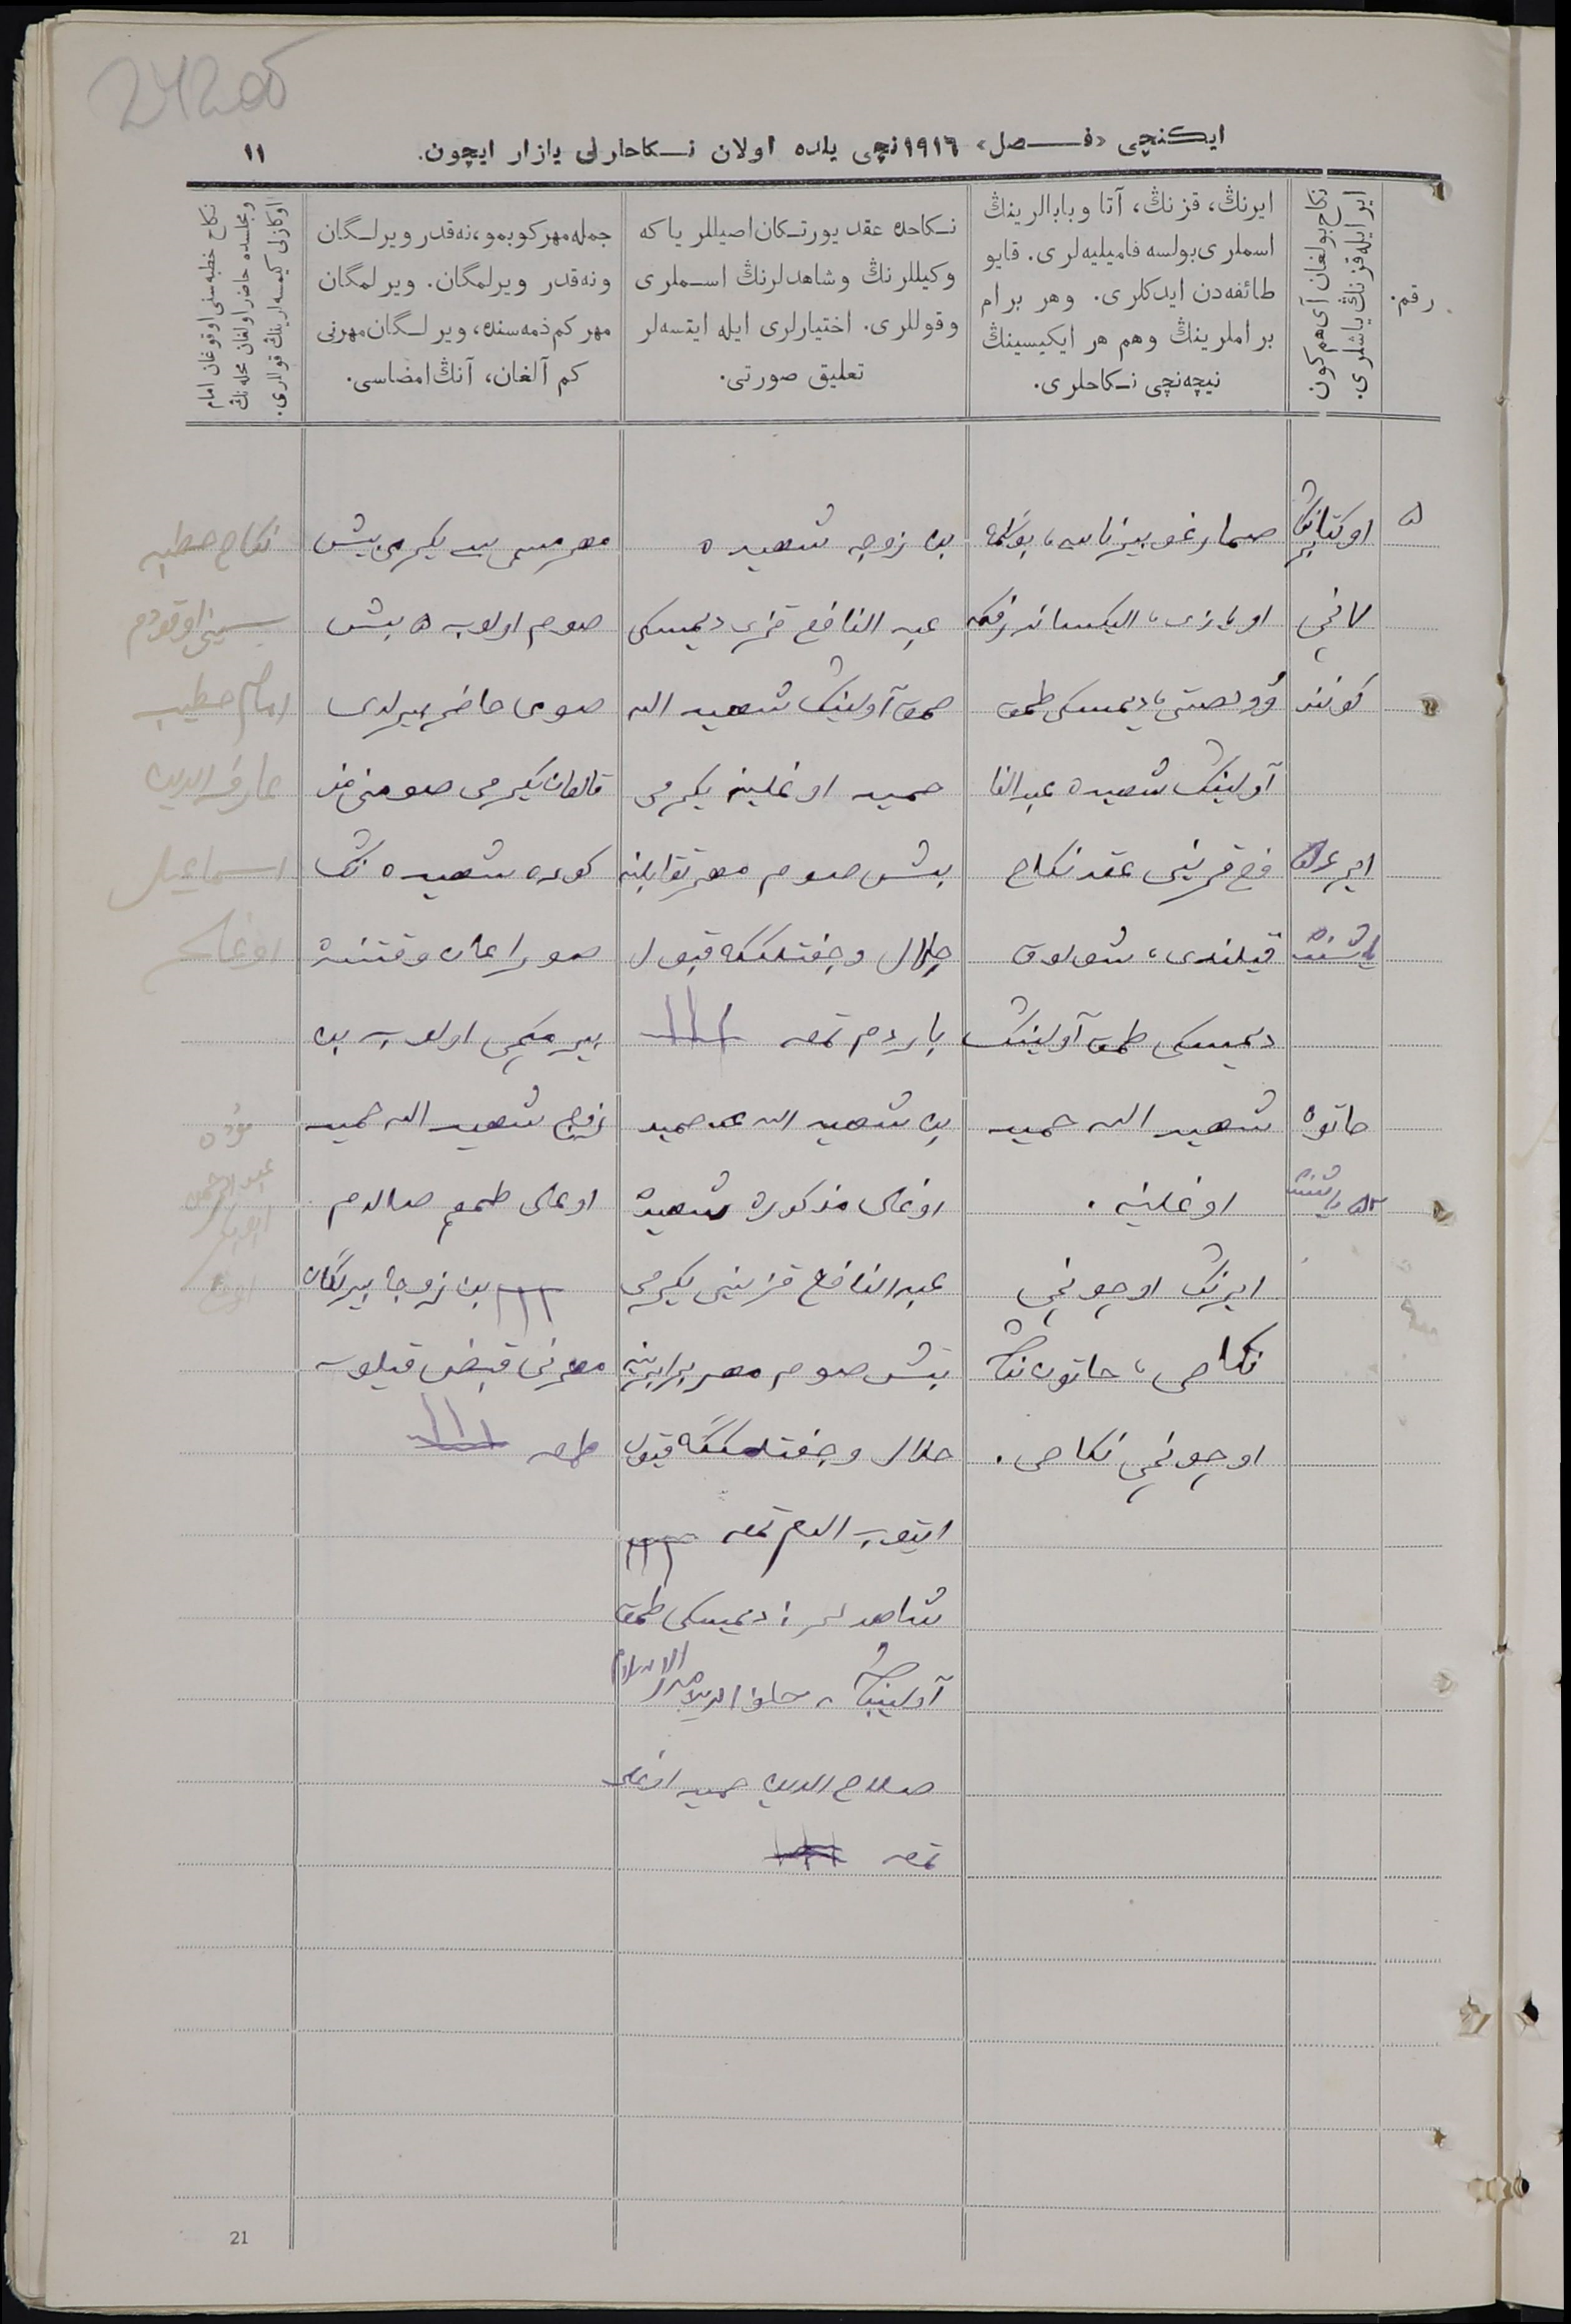 242об
ایکنچی «فصل» ١٩١٦نچی یلده اولان نكاحلرنی یازار ایچون.
١١
رقم.
ایر ایله قزنڭ یاشلری.
نكاح بولغان آی هم كون
ایرنڭ، قزنڭ، آتا وبابالرینڭ
اسملری بولسه فامیلیه‌لری. قایو
طائفه‌دن ایدكلری. وهر برام
براملرینڭ وهم هر ایكیسینڭ
نیچه‌نچی نكاحلری.
نكاحده عقد یورتكان اصیللر یاكه
وكیللرنڭ وشاهدلرنڭ اسملری
وقوللری. اختیارلری ایله ایتسه‌لر
تعلیق صورتی.
جمله مهر كوبمو، نه‌قدر ویرلگان
ونه‌قدر ویرلمگان. ویرلمگان
مهر كم ذمه‌سنده، ویرلگان مهرنی
كم آلغان، آنڭ امضاسی.
نكاح خطبه‌سنی اوقوغان امام
ومجلسده حاضر اولغان محله‌نڭ
اوكازلی كیمسه‌لرینڭ قوللری.
٥
اوكتابرنڭ
نچی
كوننده
ایر
یاشنده
خاتون
یاشنده
صمار غوبیرناسی، بوگلمه
اویازی، الیكساندرفكه
وولصتی، دیمسكی طمق
آولینڭ شهیده عبدالنا
فع قزینی عقد نكاح
قیلندی، شولوق
دیمسكی طمق آولینڭ
شهید الله حمید
اوغلینه.
ایرنڭ اوچونچی
نكاحی، خاتوننڭ
اوچونچی نكاحی.
بن زوجه شهیده
عبد النافع قزی دیمسكی
طمق آولینڭ شهید الله
حمید اوغلینه یكرمی
بش صوم مهر تقابلنه
حلال وجفتلككه قبول
باردم تمغه
بن شهید الله حمید
اوغلی مذكوره شهیده
عبدالنافع قزینی یكرمی
بش صوم مهر برابرینه
حلال وجفتلككه قبول
ایتوب الدم تمغه
شاهدلر: دیمسكی طمق
آولینڭ
صلاح الدین حمید اوغلی
تمغه
مهر مسمی یكرمی بیش
صوم اولوب ٥ بیش
صومی حاضر بیرلدی
قالغان یكرمی صومنی
شهیده نڭ
صوراغان وقتنده
بیرمكچی اولوب بن
زوج شهید الله حمید
اوغلی طمغم صالدم
بن زوجه بیرلگان
مهرنی قبض قیلوب
طمغه
نكاح خطبه
سینی اوقودم
امام خطیب
عارف الدین
اسماعیل
اوغلی
مؤذن
عبدالرحمن
21